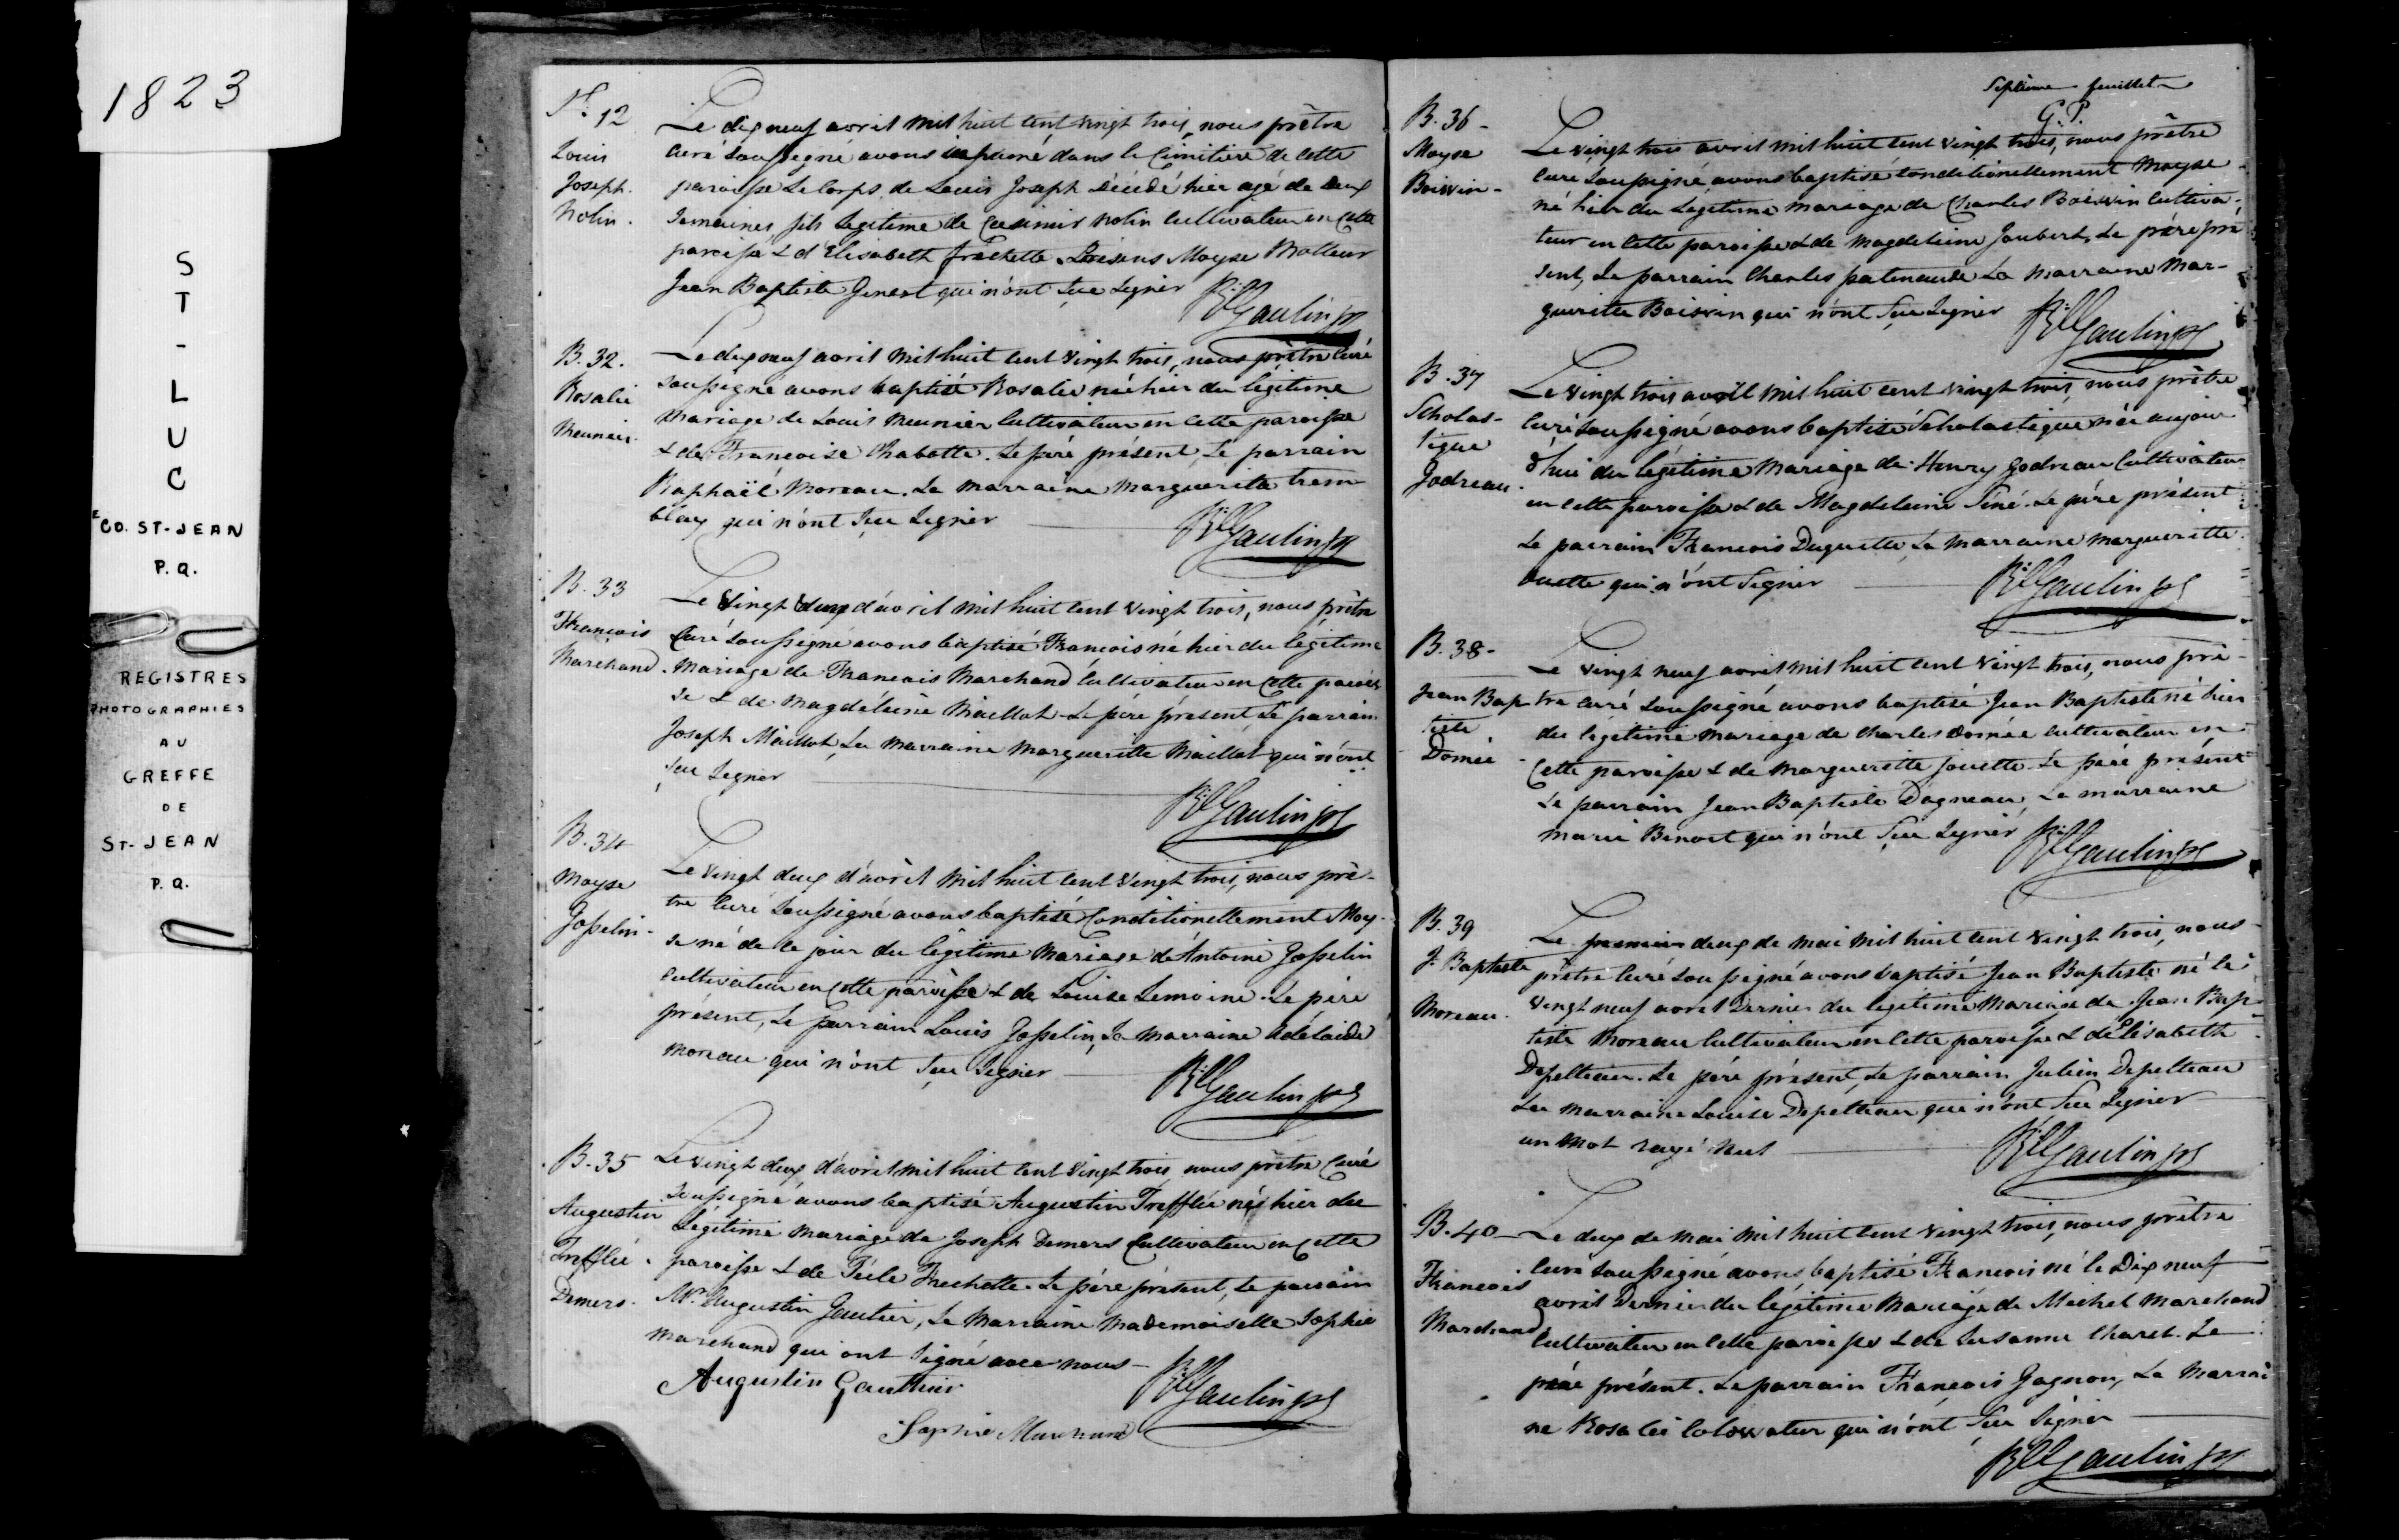 1823
S
T
-
L
U
C
E
CO. ST-JEAN
P.Q.
REGISTRES
PHOTOGRAPHIES
AU
GREFFE
DE
ST-JEAN
P.Q.
S. 12
Louis
Joseph
Nolin.
Le dix neuf avril mil huit cent vingt trois, nous prêtre
curé soussigné avons inhumé dans le Cimitiere de cette
paroisse Le Corps de Louis Joseph décédé hier agé de deux
Semaines, fils Legitime de Casimir Nolin Cultivateur en Cette
paroisse & d'Elisabeth Frechette. Présens Moyse Molleur
Jean Baptiste Genest qui n'ont Sçu Signer
Rll Gaulin ptr
B. 32.
Rosalie
Meunier.
Le dix neuf avril mil huit cent vingt trois, nous prêtre curé
soussigné avons baptisé Rosalie née hier du légitime
mariage de Louis Meunier Cultivateur en cette paroisse
& de Françoise Chabotte. Le père présent, Le parrain
Raphaël Moreau. La marraine Margueritte trem-
blay qui n'ont Sçu Signer
Rll Gaulin ptr
B. 33
François
Marchand.
Le Vingt deux d'avril mil huit cent vingt trois, nous prêtre
Curé soussigné avons baptisé François né hier du légitime
mariage de François Marchand Cultivateur en Cette parois
se & de Magdéleine Maillot Le père présent, Le parrain
Joseph Maillot, La marraine Margueritte Maillot qui n'ont
sçu Signer
Rll Gaulin ptr
B. 34
Moyse
Gosselin.
Le vingt deux d'avril mil huit cent vingt trois, nous prê-
tre curé Soussigné avons baptisé Conditionellement Moy-
se né de ce jour du légitime mariage d'Antoine Gosselin
cultivateur en Cette paroisse & de Louise Lemoine. Le père
présent, Le parrain Louis Gosselin, La marraine Adélaïde
Moreau qui n'ont Sçu Signer
Rll Gaulin ptr
B. 35
Augustin
Trefflée.
Demers.
Le vingt deux d'avril mil huit cent vingt trois nous prêtre Curé
Soussigné avons baptisé Augustin Trefflée né hier du
Légitime mariage de Joseph Demers Cultivateur en Cette
paroisse & de Técle Frechette. Le père présent, Le parrain
Mr. Augustin Gautier, La marraine Mademoiselle Sophie
Marchand qui ont Signé avec nous
Augustin Gauthier
Rll Gaulin ptr
Sophie Marchand
Septieme feuillet
G.P.
B. 36 -
Moyse
Boisvin -
Le vingt trois avril mil huit cent vingt trois, nous prêtre
curé Soussigné avons baptisé Conditionellement Moyse
né hier du Legitime mariage de Charles Boisvin cultiva-
teur en Cette paroisse & de Magdeleine Joubert, Le père pré
sent, Le parrain Charles patenaude La marraine Mar-
gueritte Boisvin qui n'ont Sçu Signer
Rll Gaulin ptr
B. 37
Scholas-
tique
Godreau.
Le vingt trois avril mil huit cent vingt trois, nous prêtre
Curé Soussigné avons baptisé Scholastique née aujour
d'hui du légitime mariage de Henry Godreau Cultivateur
en cette paroisse & de Magdeleine Séné. Le père présent
Le parrain François Duquette, La marraine Margueritte
ouette qui n'ont Signer
Rll Gaulin ptr
B. 38 -
Jean Bap
tiste
Domée -
Le vingt neuf avril mil huit cent vingt trois, nous prê-
tre curé Soussigné avons baptisé Jean Baptiste né hier
du légitime mariage de Charles Domée cultivateur en
Cette paroisse & de Margueritte Jouette Le père présent
Le parrain Jean Baptiste Dagneau, La marraine
Marie Benoet qui n'ont Sçu Signer
Rll Gaulin ptr
B. 39
J. Baptiste
Moreau.
Le premier deux de mai mil huit cent vingt trois, nous
prêtre curé Soussigné avons baptisé Jean Baptiste né le
vingt neuf avril Dernier du legitime mariage de Jean Bap-
tiste Moreau Cultivateur en Cette paroisse & d'Elisabeth
Depelteau. Le père présent, Le parrain Julien Depelteau
La marraine Louise Depelteau qui n'ont Sçu Signer
un mot rayé nul
Rll Gaulin ptr
B. 40 -
François
Marchand
Le deux de mai mil huit cent vingt trois, nous prêtre
curé soussigné avons baptisé François né le Dix neuf
avril Dernier du légitime mariage de Michel Marchand
Cultivateur en Cette paroisse & de Susanne Charet. Le
père présent. Le parrain François Gagnon, La Marrai
ne Rosalie qui n'ont Sçu Signer
Rll Gaulin ptr